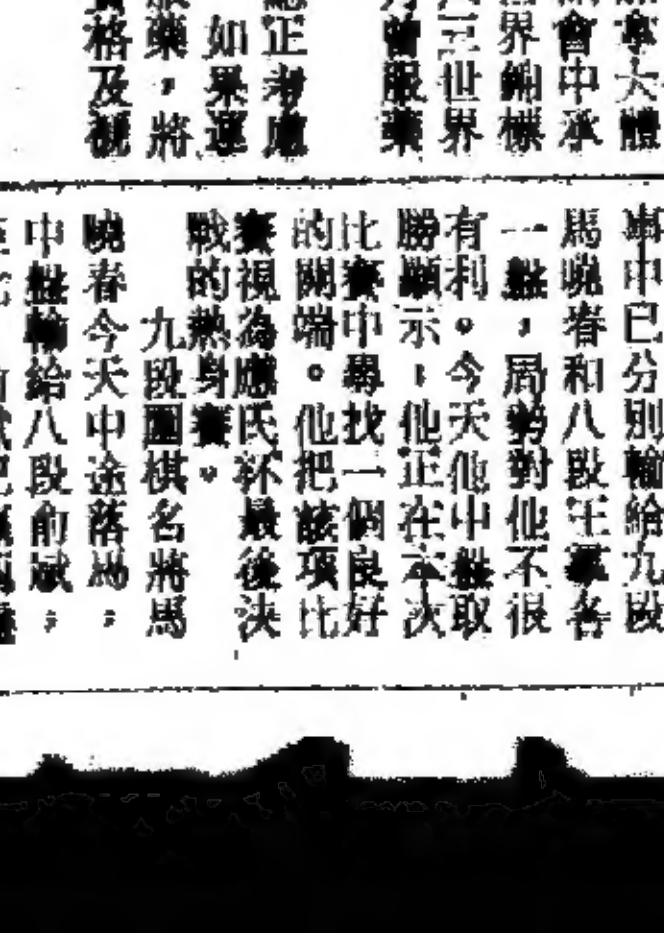 大體
會中承
界錦標
世界
會服藥
正考慮
如果運
藥,將
格及視
車中已分別輸給九段
馬曉春和八段王羣各
一盤,局勢對他不很
有利。今天他中盤取
勝顯示,他正在本次
比賽中尋找一個良好
的開端。他把該項比
賽視為應氏杯最後決
戰的熱身賽。
九段圍棋名將馬
曉春今天中途落馬,
中盤輸給八段俞斌;